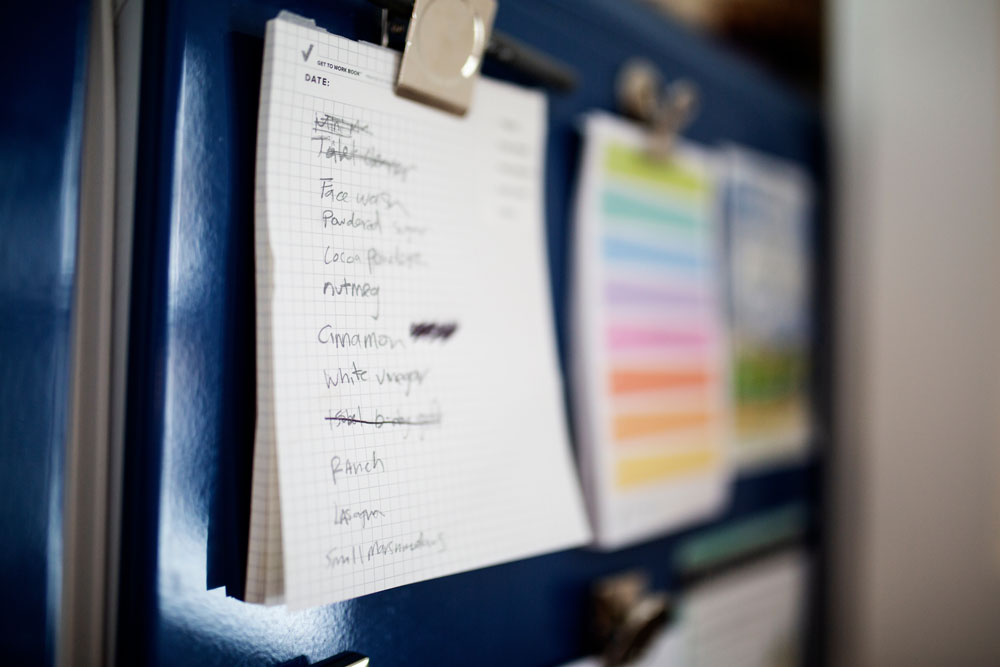 GET TO WORK BOOK
DATE:
Face wash
Powdered
Cocoa
nutmeg
Cinnamon
White vinegar
Ranch
Lasagna
Small Marshmallows